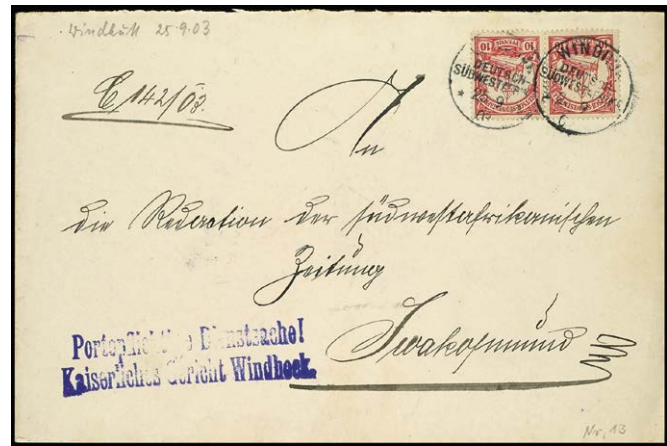 Windhuk 25.9.03
C 142/03.
10 10
10 10
WINDH
DEUTSCH-
SÜDWESTAFR
DEUTSCH
SÜDWESTAFR
An
die Redaction der südwestafrikanischen
Zeitung
Swakopmund
Portopflichtige Dienstsache!
Kaiserliches Gericht Windhoek.
Nr. 13